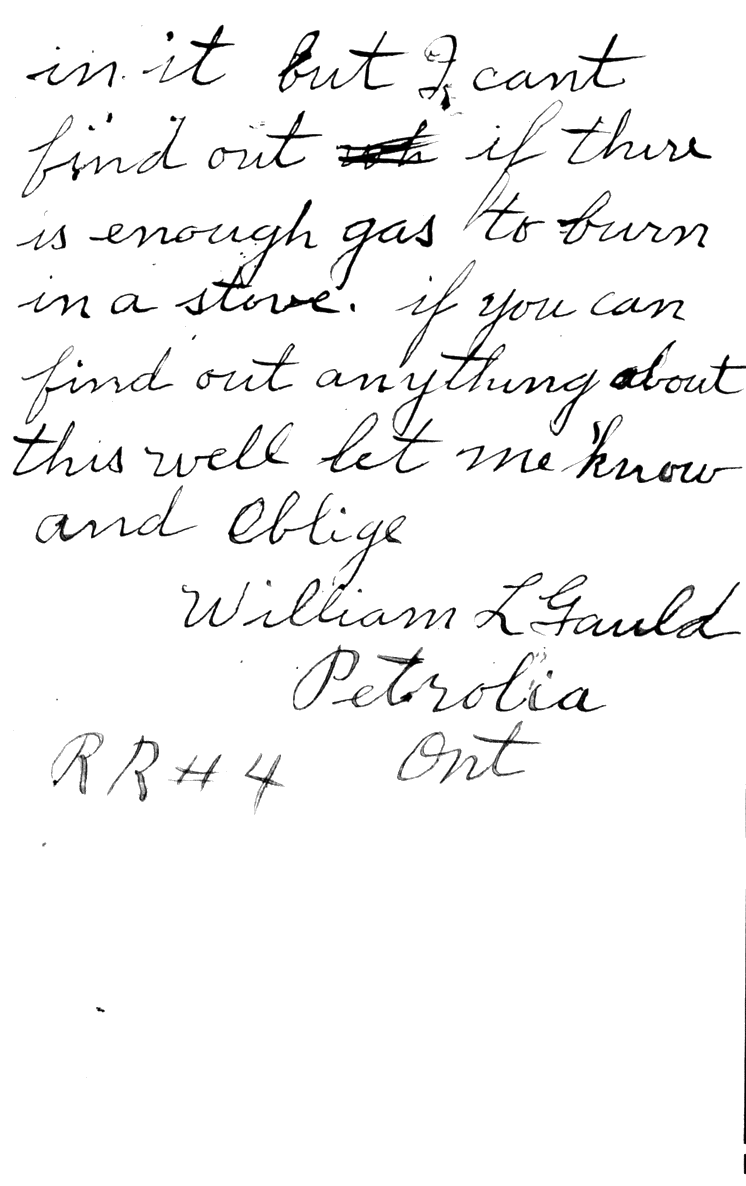 in it but I cant
find out if there
is enough gas to burn
in a stove. if you can
find out anything about
this well let me know
and Oblige
William L Gauld
Petrolia
RR#4 Ont